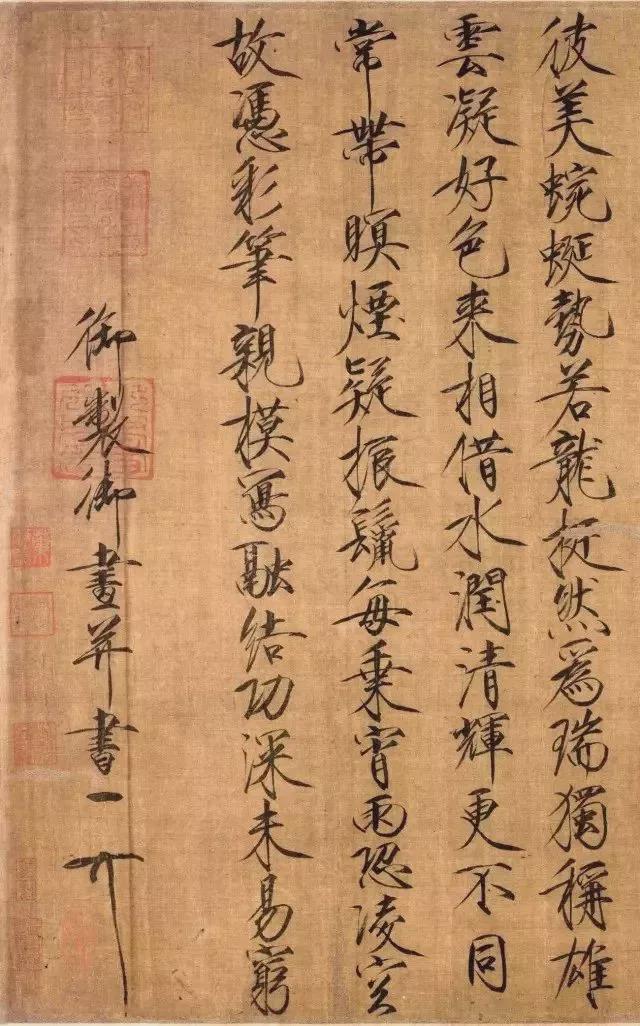 彼美蜿蜒勢若龍挺然為瑞獨稱雄
雲凝好色来相借水潤清輝更不同
常帶暝煙疑振鬣每乗宵雨恐凌空
故憑彩筆親模寫融結功深未易窮
御製御畫并書